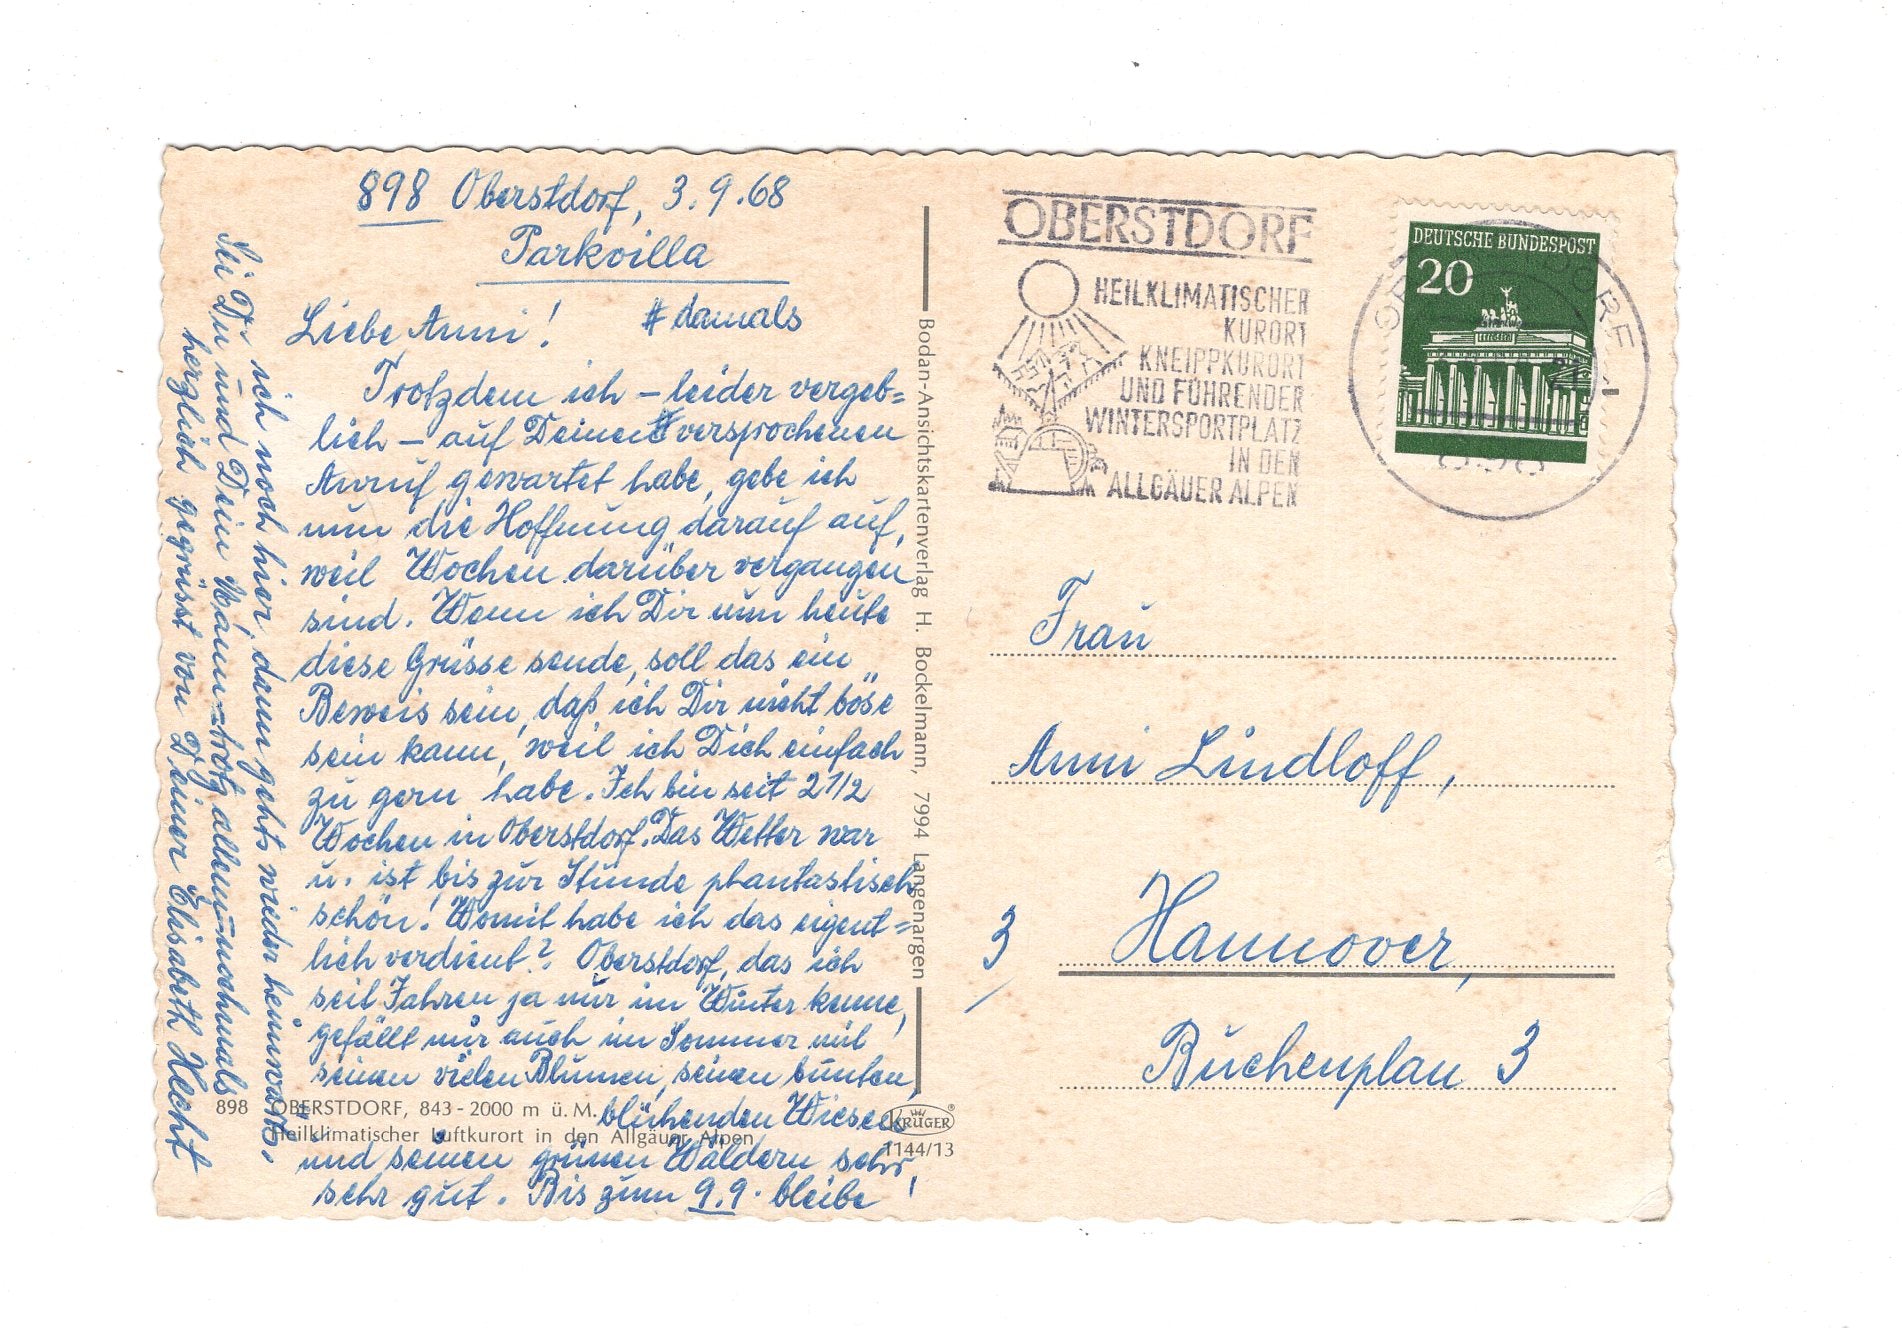 898 Oberstdorf, 3.9.68
Parkvilla
Liebe Anni! # damals
Trotzdem ich – leider vergeb=
lich – auf Deinen # versprochenen
Anruf gewartet habe, gebe ich
nun die Hoffnung darauf auf,
weil Wochen darüber vergangen
sind. Wenn ich Dir nun heute
diese Grüsse sende, soll das ein
Beweis sein, daß ich Dir nicht böse
sein kann, weil ich Dich einfach
zu gern habe. Ich bin seit 2 1/2
Wochen in Oberstdorf. Das Wetter war
u. ist bis zur Stunde phantastisch
schön! Womit habe ich das eigent=
lich verdient? Oberstdorf, das ich
seit Jahren ja nur im Winter kenne,
gefällt mir auch im Sommer mit
seinen vielen Blumen, seinen bunten,
blühenden Wiesen
und seinen grünen Wäldern sehr,
sehr gut. Bis zum 9.9. bleibe
ich noch hier, dann gehts wieder heimwärts.
Sei Du und Dein Mann – trotz allem – nochmals
herzlich gegrüsst von Deiner Elisabeth Hecht
898 OBERSTDORF, 843 - 2000 m ü. M.
Heilklimatischer Luftkurort in den Allgäuer Alpen
Bodan-Ansichtskartenverlag H. Bockelmann, 7994 Langenargen
KRÜGER®
1144/13
OBERSTDORF
HEILKLIMATISCHER
KURORT
KNEIPPKURORT
UND FÜHRENDER
WINTERSPORTPLATZ
IN DEN
ALLGÄUER ALPEN
DEUTSCHE BUNDESPOST
20
Frau
Anni Lindloff,
3 Hannover,
Buchenplan 3